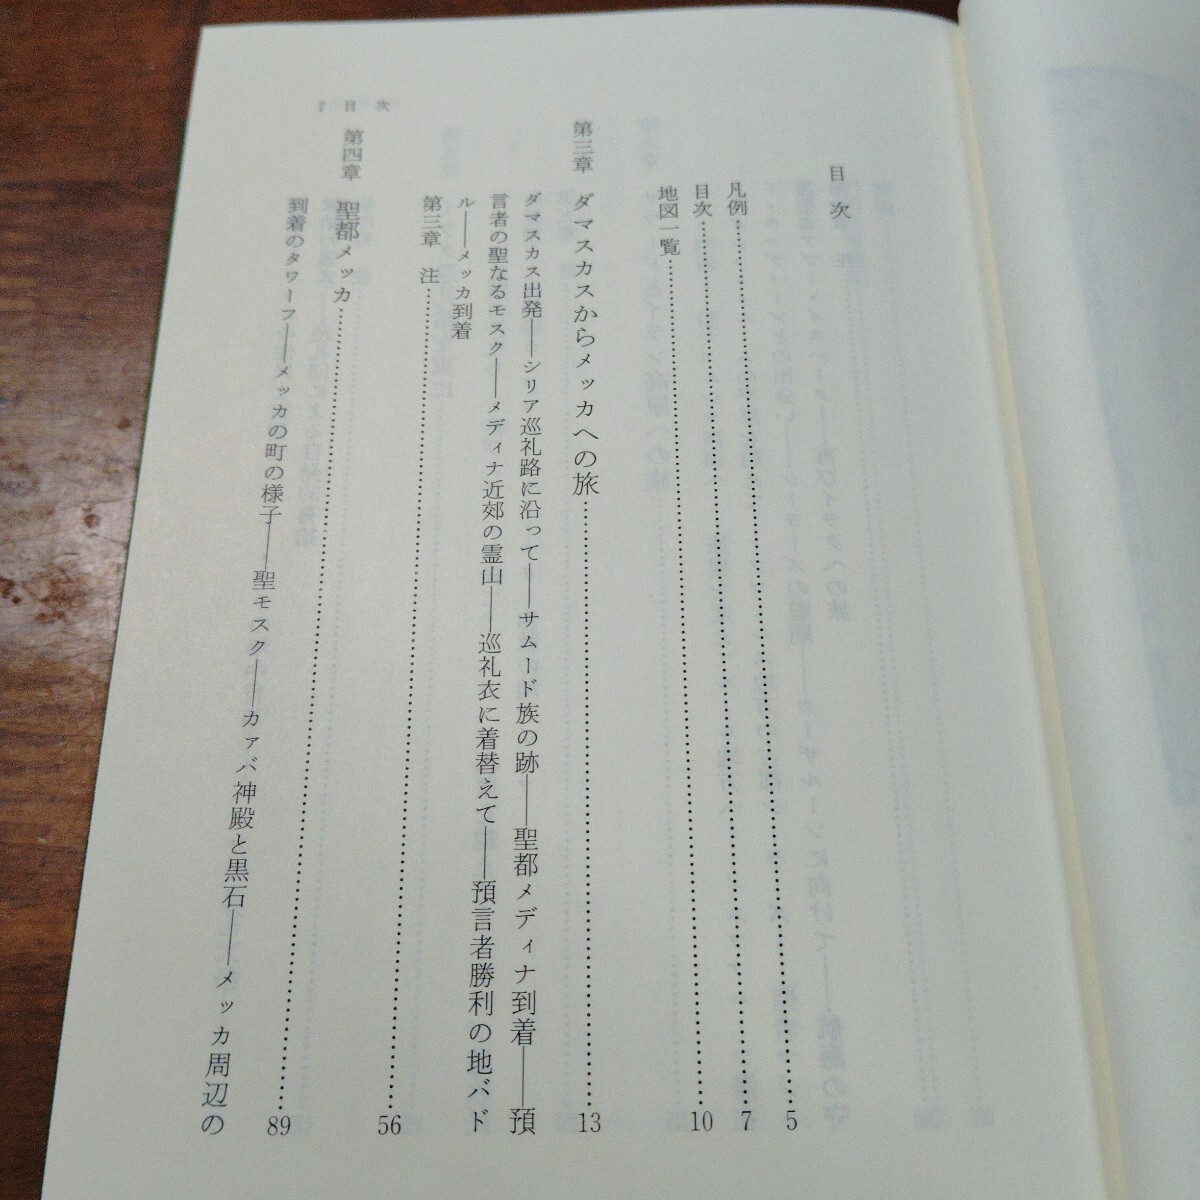 目次
凡例……………………5
目次……………………7
地図一覧……………………10
第三章 ダマスカスからメッカへの旅……………………13
ダマスカス出発――シリア巡礼路に沿って――サムード族の跡――聖都メディナ到着――預
言者の聖なるモスク――メディナ近郊の霊山――巡礼衣に着替えて――預言者勝利の地バド
ル――メッカ到着
第三章 注……………………56
第四章 聖都メッカ……………………89
到着のタワーフ――メッカの町の様子――聖モスク――カァバ神殿と黒石――メッカ周辺の
7 目次